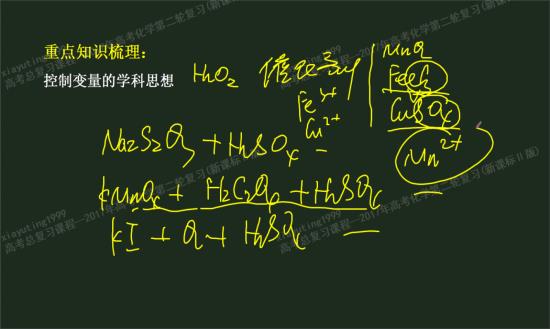 重点知识梳理：
控制变量的学科思想
H₂O₂
MnO₂
FeCl₃
CuSO₄
Fe³⁺
Cu²⁺
Mn²⁺
Na₂S₂O₃ + H₂SO₄
KMnO₄ + H₂C₂O₄ + H₂SO₄
KI + O₂ + H₂SO₄
xiayuting1999
高考总复习课程—2017年高考化学第二轮复习(新课标Ⅱ版)